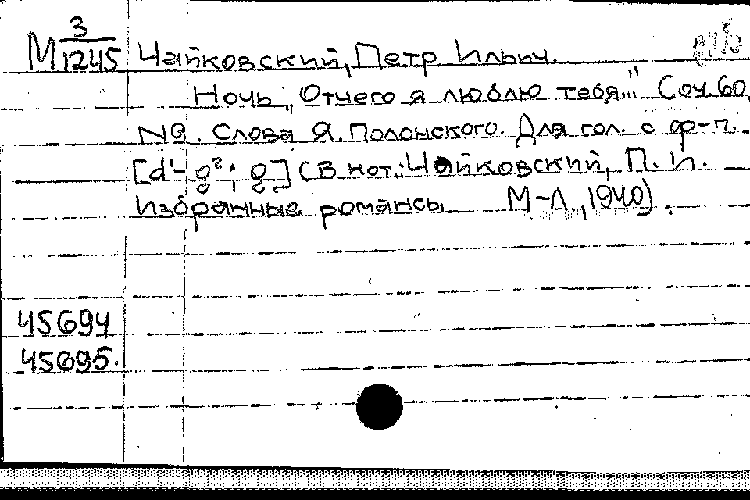 М 3/1245 Чайковский, Петр Ильич.
Ночь „Отчего я люблю тебя..." Соч. 60,
№9. Слова Я. Полонского. Для гол. с ф-п.
[d¹- g²; g] (В нот.: Чайковский, П. И.
Избранные романсы М-Л, 1940).
45694
45695.